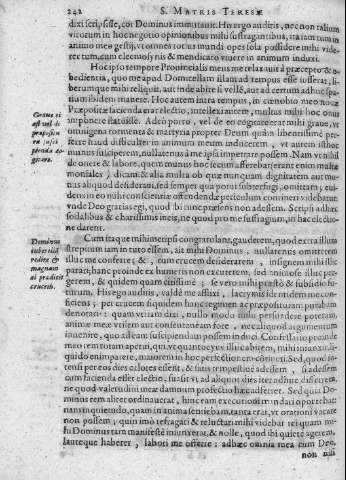 242 S. MATRIS TERESÆ
dixi scripsisse, cor Dominus immutauit. His ergo auditis, nec non talium
virorum in hoc negotio opinionibus mihi suffragantibus, ita tum in
animo meo gestij, vt omnes totius mundi opes sola possidere mihi vide-
rer tum, cum eleemosynis & mendicato viuere in animum induxi.
Hoc ipso tempore Prouincialis meus me relaxauit à præcepto & o-
bedientia, quo me apud Domicellam illam ad tempus esse iusserat, li-
berumque mihi reliquit, aut inde abire si vellé, aut ad certum adhuc spa-
tium ibidem manere. Hoc autem intra tempus, in cœnobio meo noua
Præpositæ facienda erat electio, intellexi autem, multas mihi hoc onus
imponere statuisse. Adeò porrò, vel de eo cogitare erat mihi graue, vt
omnigena tormenta & martyria propter Deum quàm libentissimè per-
ferre haud difficulter in animum meum inducerem, vt autem isthoc
munus susciperem, nullatenus à me ipsa impetrare possem. Nam vt nihil
de onere & labore, quem munus hoc secum afferebat
moniales) dicam: & alia multa ob quæ numquam dignitatem aut mu-
nus aliquod desideraui, sed semper qua potui subterfugi, omittam;
dens in eo mihi conscientiæ offendendæ periculum contineri videbatur
vnde Deo gratias egi, quod ibi tunc præsens non adessem. Scripsi
sodalibus & charissimis ineis, ne quod pro me suffragium, in hac electio-
ne darent.
Cum itaque mihimetipsi congratulans, gauderem, quod extra illum
strepitum iam in tuto essem, ait mihi Dominus, nullatenus omitterem
illuc me conferre; &, cum crucem desiderarem, insignem mihi isthic
parari; hanc proinde ex humeris non excuterem, sed animosè illuc per-
gerem, & quidem quàm citissimè; se verò mihi præstò & subsidio fu-
turum. Hisce auditis, valdè me afflixi, ac lacrymis identidem me con-
ficiens; per crucem siquidem hanc regimen ac præposituram puta­bam
denotari: quam vtriam dixi, nullo modo mihi persuadere poteram
animæ meæ vtilem aut consentaneam fore, nec aliquod argumentum
inuenire, quo ad eam suscipiendam possem induci. Confessario proinde
meo rem totam aperui, qui, vt quantocyus illi abirem, mihi
quidò enim patere, maiorem in hoc perfectionem contineri. Sed, quod in-
tensi per eos dies calores essent, & satis tempestiuè adessem, si adessem
cum facienda esset electio, suasit vt ad aliquot dies iter adhuc differrem,
ne quod valetudini meæ damnum profectio hæc adferret. Sed quia Do-
minus rem aliter ordinauerat, hinc eam executioni mandari oportebat:
nam inquietudo, quam in anima sentiebam, tanta erat, vt orationi vacare
non possem; quin imò refragari & reluctari mihi videbar rei quam mi-
hi Dominus tam manifestè iniunxerat, & nolle, quod ibi quietè agerem,
lautèque haberer, labori me offerre: adhæc omnia mea cum Deo,
non nisi
Dominus
&
magnum
crucem.